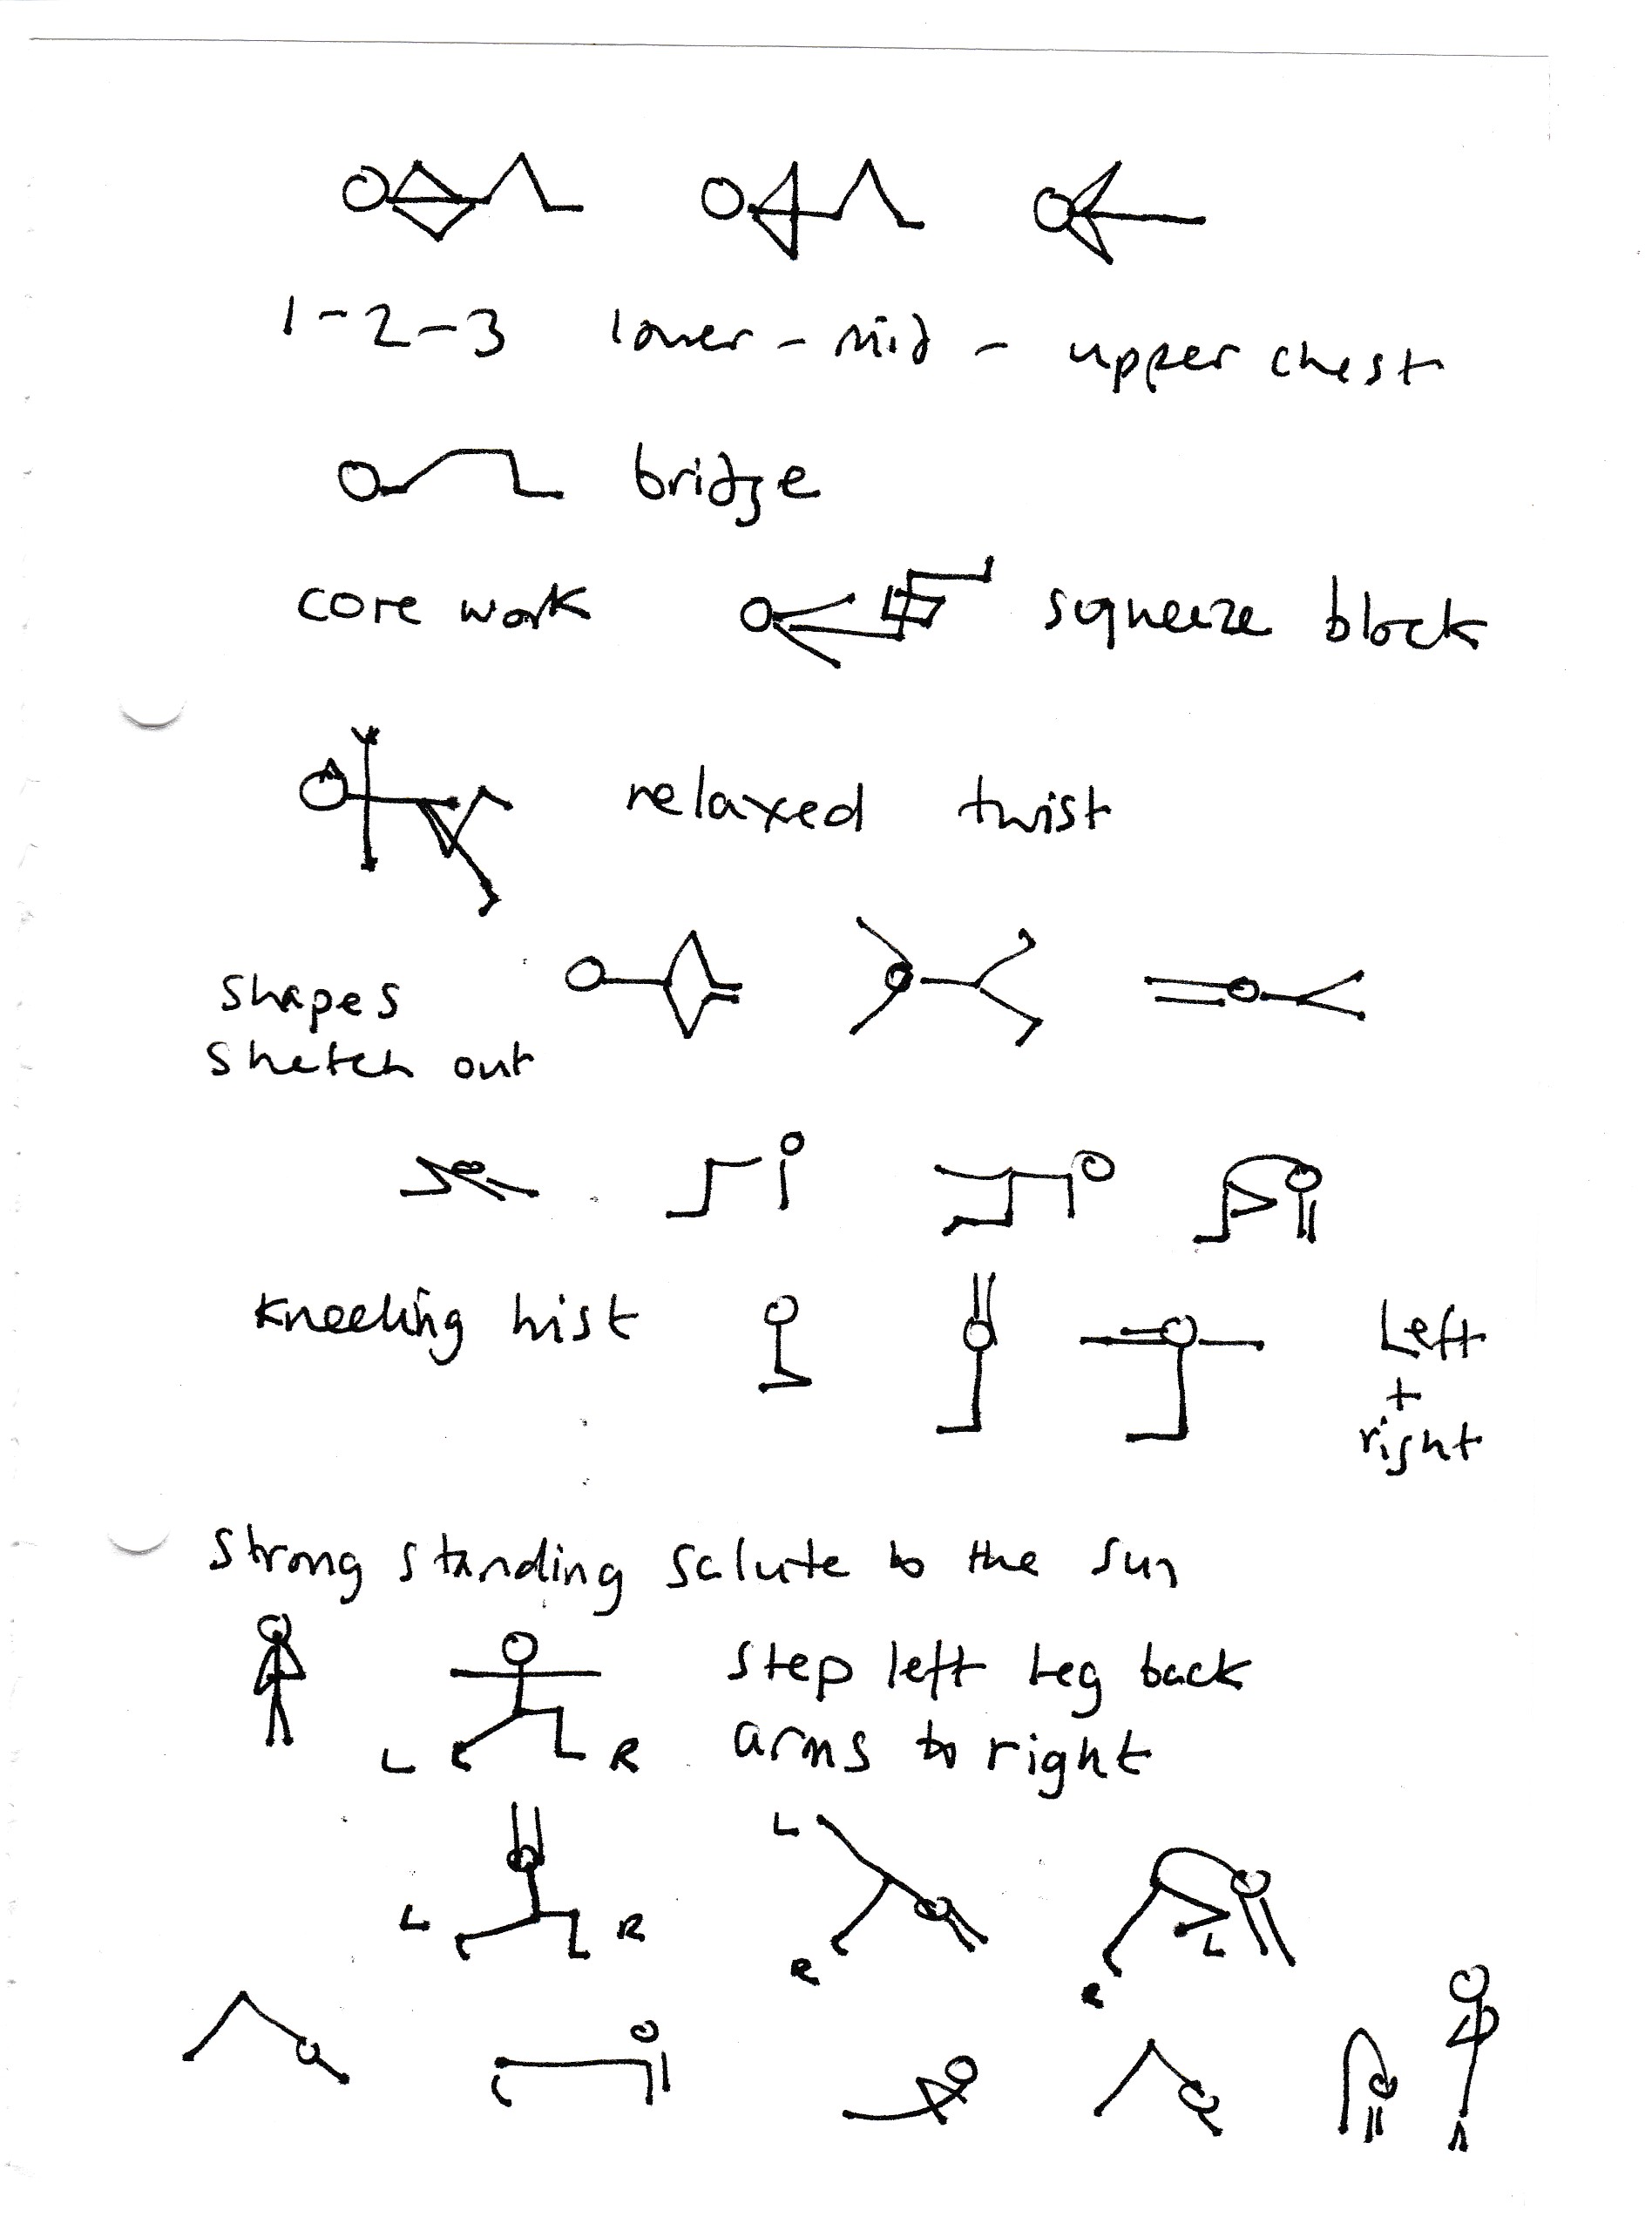 1-2-3 lower - mid - upper chest
bridge
core work squeeze block
relaxed twist
shapes
stretch out
kneeling twist Left
+
right
strong standing salute to the sun
step left leg back
L R arms to right
L
L R
R L
R